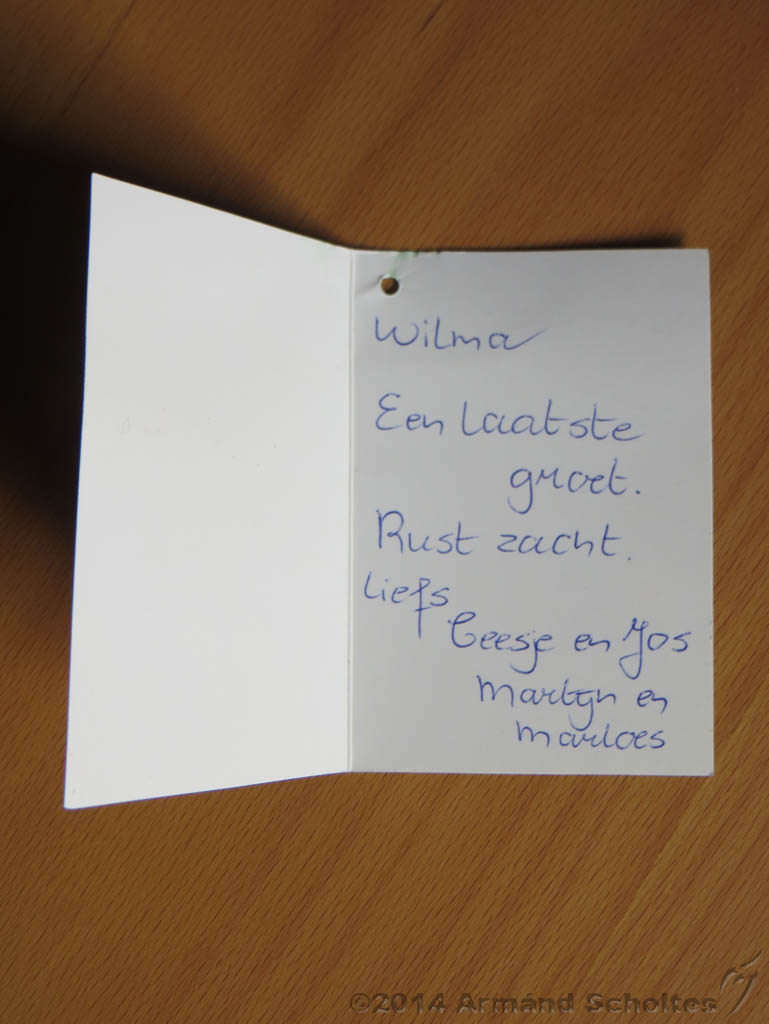 Wilma
Een laatste
groet.
Rust zacht.
Liefs
Ceesje en Jos
Martijn en
Marloes
©2014 Armánd Scholtes